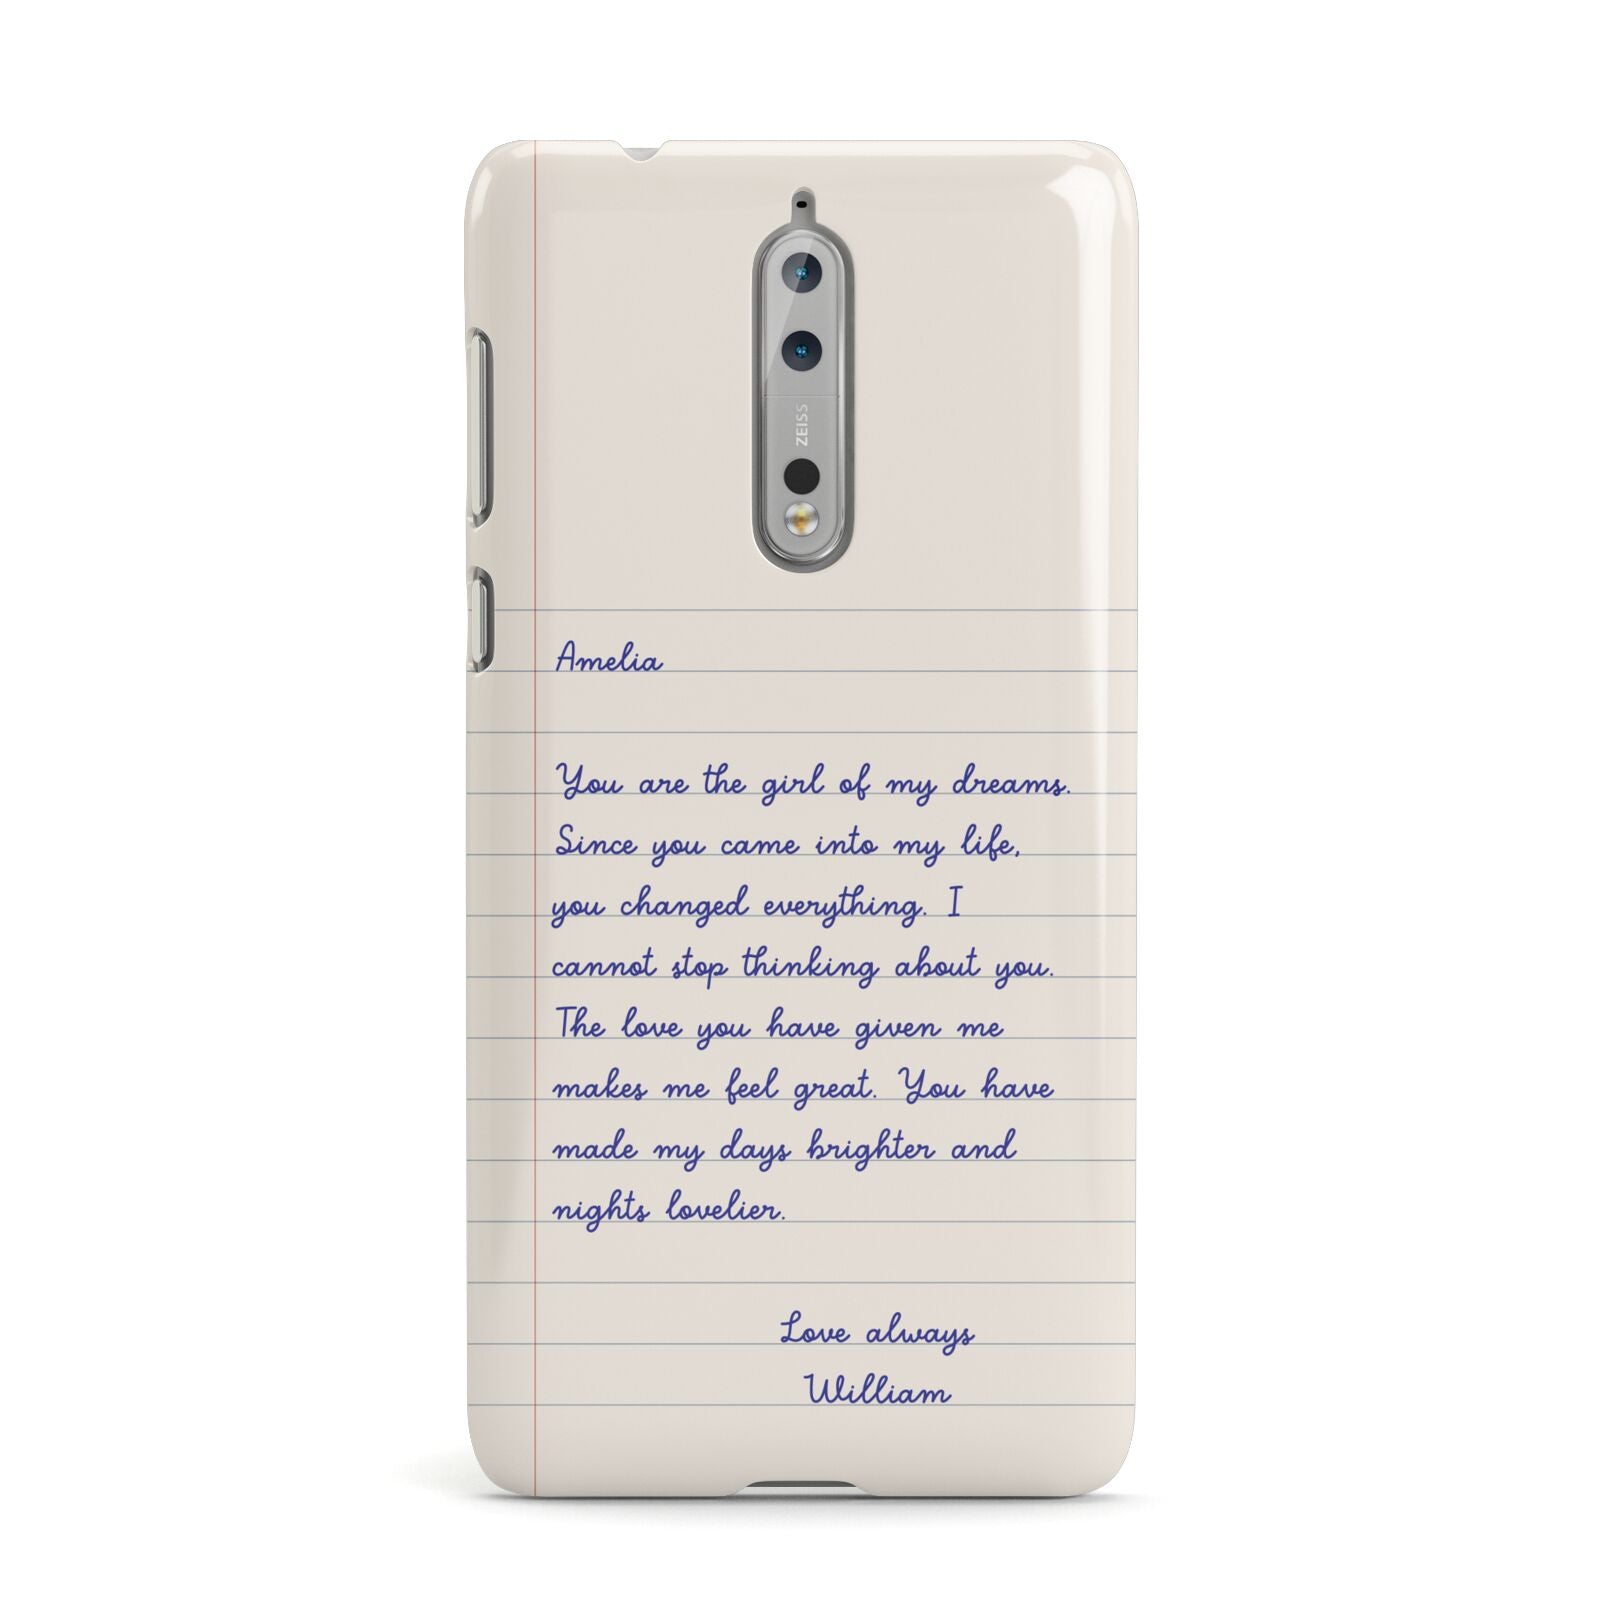 ZEISS
Amelia
You are the girl of my dreams.
Since you came into my life,
you changed everything. I
cannot stop thinking about you.
The love you have given me
makes me feel great. You have
made my days brighter and
nights lovelier.
Love always
William